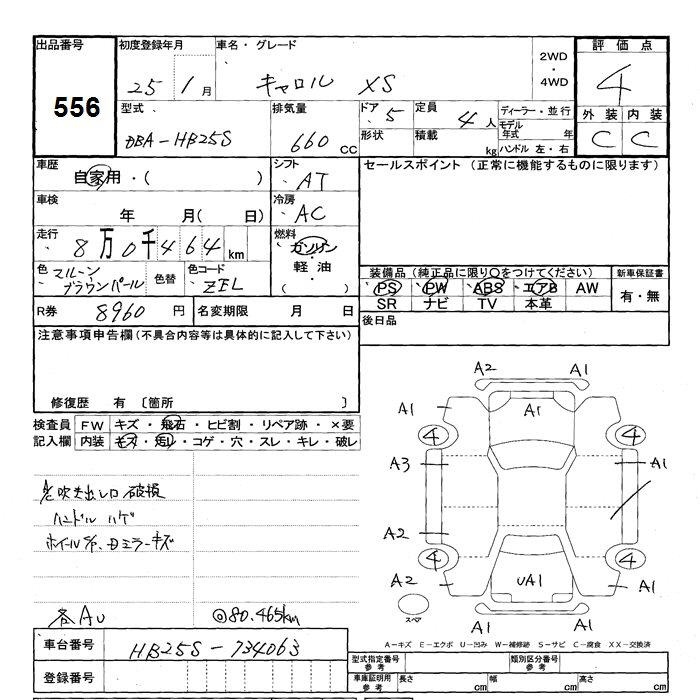 出品番号 初度登録年月 車名・グレード 2WD・4WD 評価点
556 25 1月 キャロル XS 4
型式 排気量 ドア 5 定員 4人 ディーラー・並行 外装 内装
DBA-HB25S 660cc 形状 積載 kg モデル年式 年 C C
ハンドル 左・右
車歴 シフト セールスポイント (正常に機能するものに限ります)
自家用・( ) AT
車検 冷房
年 月( 日) AC
走行 燃料
8万0千464km ガソリン・軽油
色 マルーンブラウンパール 色替 色コード ZEL 装備品(純正品に限り○をつけてください) 新車保証書
PS PW ABS エアB AW 有・無
SR ナビ TV 本革
R券 8960円 名変期限 月 日 後日品
注意事項申告欄(不具合内容等は具体的に記入して下さい)
修復歴 有 〔箇所 〕
検査員 FW キズ・飛石・ヒビ割・リペア跡・×要
記入欄 内装 キズ・汚レ・コゲ・穴・スレ・キレ・破レ
吹き出し口 破損
ハンドル ハゲ
ミラーキズ
各AU @80.465km
A2 A1
A1 A1
4 4
A3 A1
A2
4 4
A2 UA1
スペア
A1 A1
A-キズ E-エクボ U-凹み W-補修跡 S-サビ C-腐食 XX-交換済
車台番号 HB25S-734063
型式指定番号 参考 類別区分番号 参考
登録番号 車庫証明用 参考 長さ cm 幅 cm 高さ cm